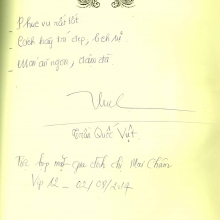 - Phục vụ rất tốt
- Cách bày trí đẹp, lịch sự
- Món ăn ngon, đậm đà.
Trần Quốc Việt.
Tiệc họp mặt gia đình chị Mai Châm
Vip 12 - 02/08/2014